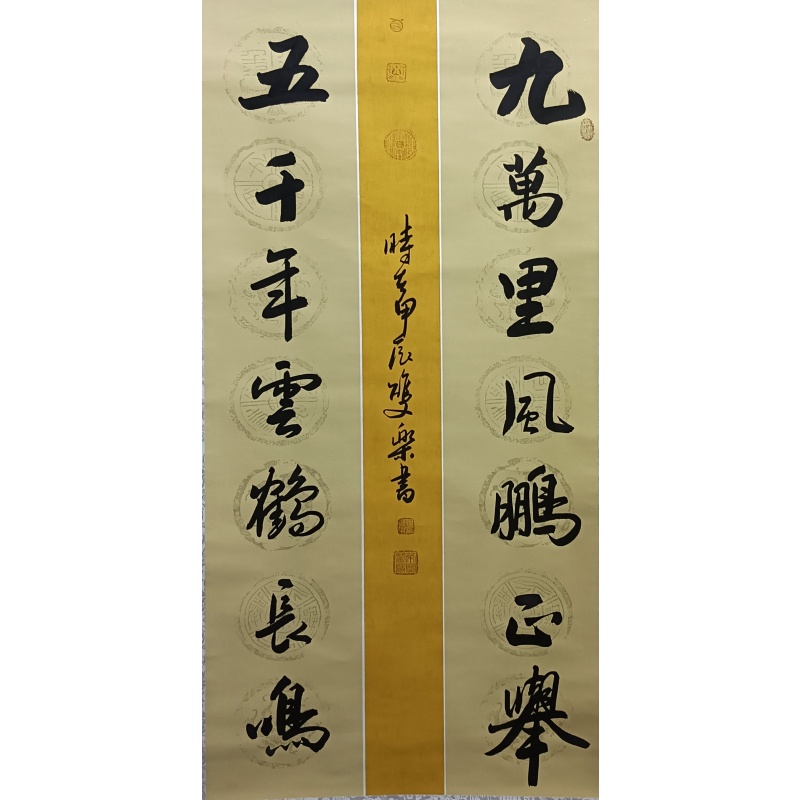 九萬里風鵬正舉
五千年雲鶴長鳴
時在甲辰雙樂書